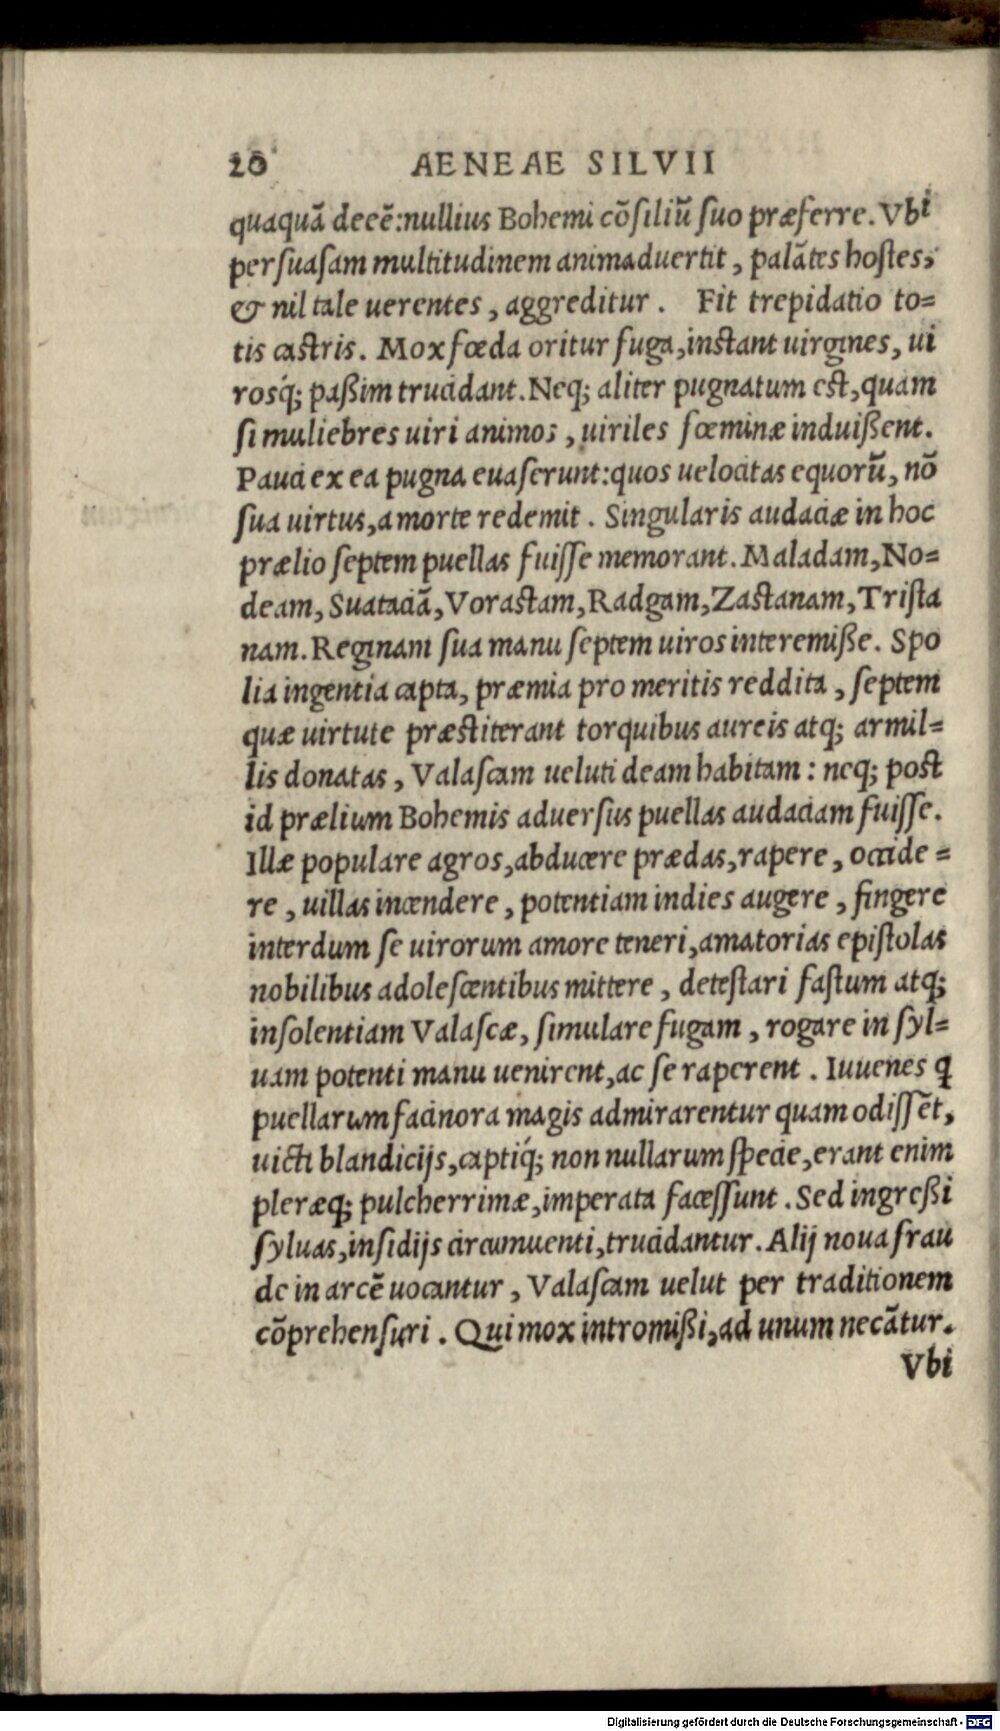 20 AENEAE SILVII
quaquã deeẽ:nullius Bohemi cõsiliũ suo præferre. Vbi
persuasam multitudinem animaduertit, palãtes hostes,
& nil tale uerentes, aggreditur. Fit trepidatio to=
tis castris. Mox fœda oritur fuga, instant uirgines, ui
rosq́; paßim trucidant. Neq; aliter pugnatum est, quam
si muliebres uiri animos, uiriles fœminæ induißent.
Pauci ex ea pugna euaserunt: quos uelocitas equorũ, nõ
sua uirtus, a morte redemit. Singularis audaciæ in hoc
prælio septem puellas fuisse memorant. Maladam, No=
deam, Suataciã, Vorastam, Radgam, Zastanam, Trista
nam. Reginam sua manu septem uiros interemiße. Spo
lia ingentia capta, præmia pro meritis reddita, septem
quæ uirtute præstiterant torquibus aureis atq; armil=
lis donatas, Valascam ueluti deam habitam: neq; post
id prælium Bohemis aduersus puellas audaciam fuisse.
Illæ populare agros, abducere prædas, rapere, occide=
re, uillas incendere, potentiam indies augere, fingere
interdum se uirorum amore teneri, amatorias epistolas
nobilibus adolescentibus mittere, detestari fastum atq;
insolentiam Valascæ, simulare fugam, rogare in syl=
uam potenti manu uenirent, ac se raperent. Iuuenes q
puellarum facinora magis admirarentur quam odissẽt,
uicti blandicijs, captiq́; non nullarum specie, erant enim
pleræq; pulcherrimæ, imperata facessunt. Sed ingreßi
syluas, insidijs circumuenti, trucidantur. Alij noua frau
de in arcẽ uocantur, Valascam uelut per traditionem
cõprehensuri. Qui mox intromißi, ad unum necãtur.
Vbi
Digitalisierung gefördert durch die Deutsche Forschungsgemeinschaft - DFG